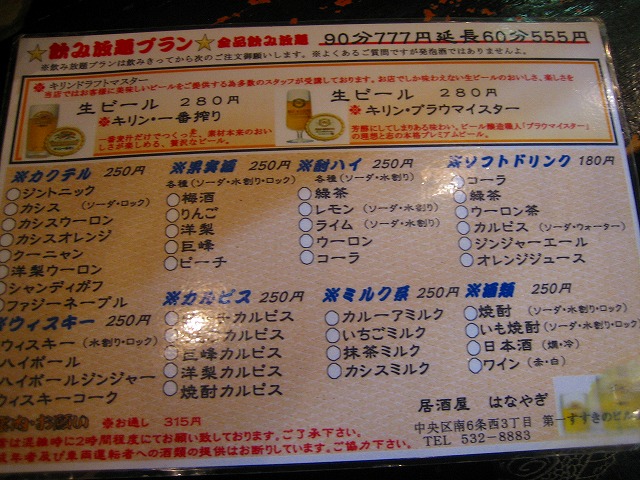 ☆飲み放題プラン☆全品飲み放題 90分777円延長60分555円
※飲み放題プランは飲みきってから次のご注文御願いします。※よくあるご質問ですが発泡酒ではありませんよ。
※キリンドラフトマスター
当店ではお客様に美味しいビールをご提供する為多くのスタッフが受講しております。お店でしか味わえない生ビールのおいしさ、楽しさを
生ビール 280円
※キリン・一番搾り
一番麦汁だけでつくった、素材本来のおいしさが楽しめる、贅沢なビール。
生ビール 280円
※キリン・ブラウマイスター
芳醇にしてしまりある味わい。ビール醸造職人「ブラウマイスター」の理想と志の本格プレミアムビール。
※カクテル 250円
ジントニック
カシス (ソーダ・ロック)
カシスウーロン
カシスオレンジ
クーニャン
洋梨ウーロン
シャンディガフ
ファジーネーブル
※ウィスキー 250円
ウィスキー (水割り・ロック)
ハイボール
ハイボールジンジャー
ウィスキーコーク
※果実酒 250円
各種(ソーダ・水割り・ロック)
梅酒
りんご
洋梨
巨峰
ピーチ
※カルピス 250円
カルピス
カルピス
巨峰カルピス
洋梨カルピス
焼酎カルピス
※酎ハイ 250円
各種(ソーダ・水割り)
緑茶
レモン (ソーダ・水割り)
ライム (ソーダ・水割り)
ウーロン
コーラ
※ミルク系 250円
カルーアミルク
いちごミルク
抹茶ミルク
カシスミルク
※ソフトドリンク 180円
コーラ
緑茶
ウーロン茶
カルピス (ソーダ・ウォーター)
ジンジャーエール
オレンジジュース
※酒類 250円
焼酎 (ソーダ・水割り・ロック)
いも焼酎 (ソーダ・水割り・ロック)
日本酒 (燗・冷)
ワイン (赤・白)
※お通し 315円
は混雑時に2時間程度にてお願い致しております。ご了承下さい。
年者及び車両運転者への酒類の提供はお断りしています。ご協力下さい。
居酒屋 はなやぎ
中央区南6条西3丁目 第一すすきのビル
TEL 532-8883